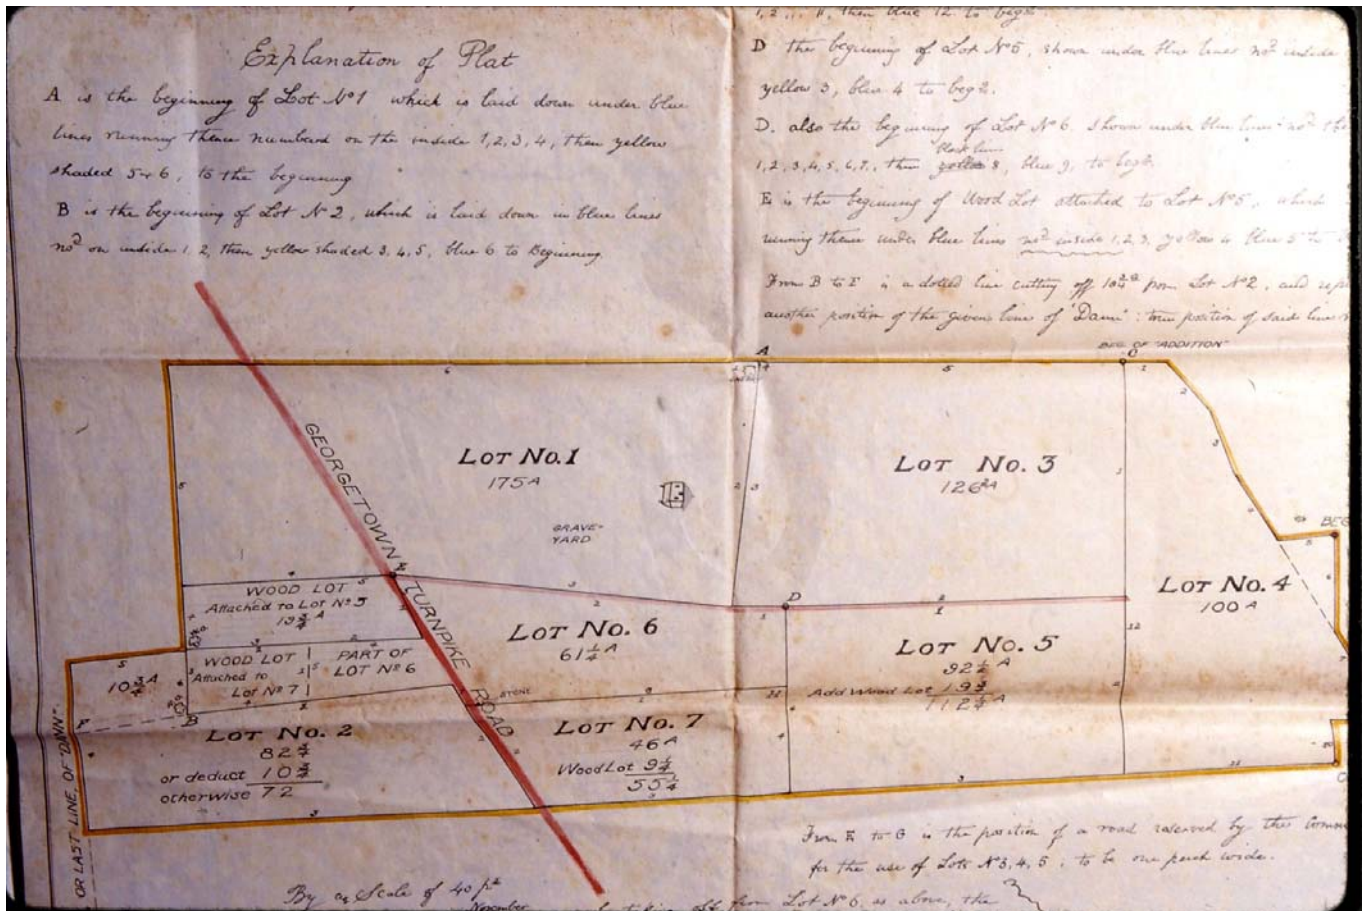 Explanation of Plat
A is the beginning of Lot No 1 which is laid down under blue
lines running thence numbered on the inside 1, 2, 3, 4, then yellow
shaded 5 & 6, to the beginning
B is the beginning of Lot No 2, which is laid down in blue lines
nod on inside 1, 2, then yellow shaded 3, 4, 5, blue 6 to Beginning
1, 2 11, then blue 12 to beg
D the beginning of Lot No 5, shown under blue lines nod inside
yellow 3, blue 4 to beg
D. also the beginning of Lot No 6. shown under blue lines nod
black line
1, 2, 3, 4, 5, 6, 7, then yellow 8, blue 9, to beg
E is the beginning of Wood Lot attached to Lot No 5, which
running thence under blue lines nod inside 1, 2, 3, yellow 4 blue 5 to
From B to F is a dotted line cutting off 10 3/4 a from Lot No 2, and
another position of the given line of "Dann": true position of said line
BEG OF "ADDITION"
A
LOT NO. 1
175 A
GRAVE-
YARD
LOT NO. 3
LOT NO. 4
100 A
BEG
GEORGETOWN TURNPIKE ROAD
WOOD LOT
Attached to Lot No 5
19 3/4 A
WOOD LOT
Attached to
Lot No 7
PART OF
LOT No 6
10 3/4 A
F
B
D
LOT NO. 6
61 1/4 A
LOT NO. 5
92 1/2 A
Add Wood Lot 19 3/4
112 1/4 A
STONE
LOT NO. 2
82 3/4
or deduct 10 3/4
otherwise 72
LOT NO. 7
46 A
Wood Lot 9 1/4
55 1/4
OR LAST LINE, OF "DANN".
From E to G is the position of a road reserved by the
for the use of Lots No 3, 4, 5, to be one perch wide.
By a Scale of 40
November
taking off from Lot No 6, as above, the